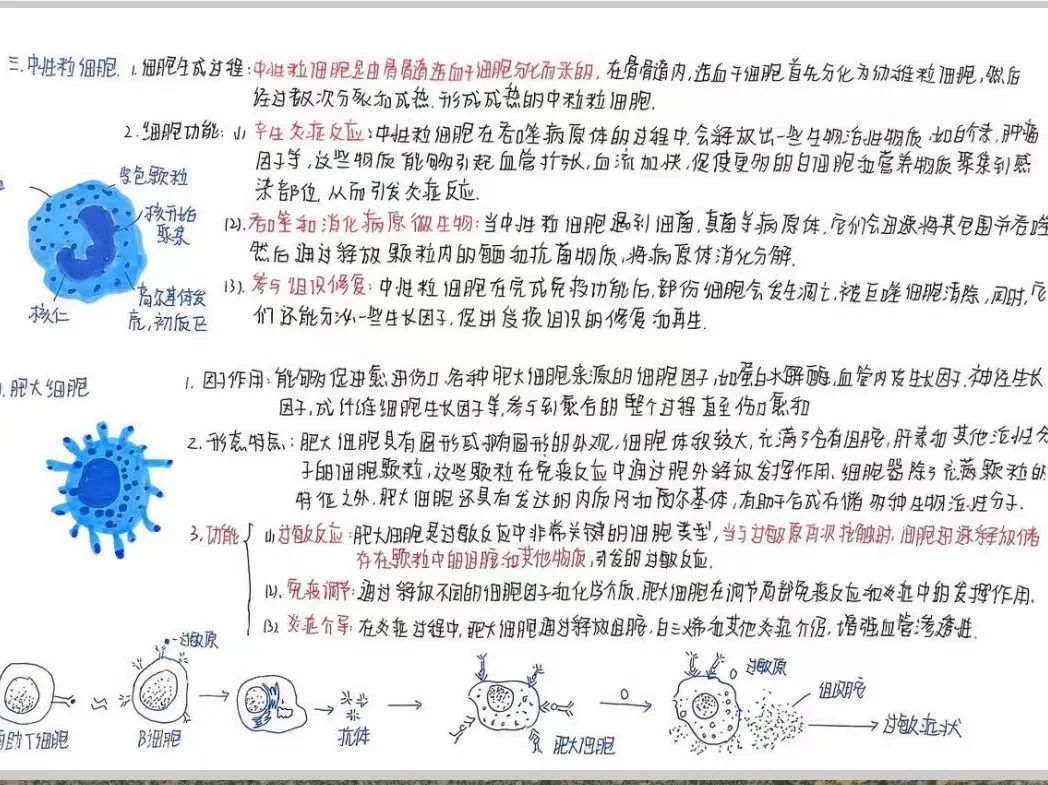 三.中性粒细胞. 1.细胞生成过程:中性粒细胞是由骨髓造血干细胞分化而来的,在骨髓内,造血干细胞首先分化为幼稚粒细胞,然后
经过数次分裂和成熟.形成成熟的中粒粒细胞.
2.细胞功能: (1) 炎症反应:中性粒细胞在吞噬病原体的过程中,会释放出一些生物活性物质,如白介素,肿瘤
因子等,这些物质能够引起血管扩张,血流加快,促使更多的白细胞和营养物质聚集到感
染部位,从而引发炎症反应.
色颗粒
核开始
聚集
(2).吞噬和消化病原微生物:当中性粒细胞遇到细菌,真菌等病原体,它们会迅速将其包围并吞噬
然后通过释放颗粒内的酶和抗菌物质,将病原体消化分解.
(3).参与组织修复:中性粒细胞在完成免疫功能后,部份细胞会发生凋亡,被巨噬细胞清除,同时,它
们还能分泌一些生长因子,促进发换组织的修复和再生.
核仁
高尔基体发
底,初反正
.肥大细胞
1. 因子作用:能够促进愈进伤口.各种肥大细胞来源的细胞因子,如蛋白水解酶,血管内皮生长因子,神经生长
因子,成纤维细胞生长因子等,参与到愈合的整个过程直至伤口愈和
2.形态特点:肥大细胞具有圆形或椭圆形的外观,细胞体积较大,充满了含有组胺,肝素和其他活性分
子的细胞颗粒,这些颗粒在免疫反应中通过胞外释放发挥作用.细胞器除了充满颗粒的
特征之外.肥大细胞还具有发达的内质网和高尔基体,有助于合成存储多种生物活性分子.
3.功能 (1)过敏反应:肥大细胞是过敏反应中非常关键的细胞类型,当与过敏原再次接触时,细胞迅速释放储
存在颗粒中的组胺和其他物质,引发的过敏反应.
(2).免疫调节:通过释放不同的细胞因子和化学介质.肥大细胞在调节局部免疫反应和炎症中的发挥作用.
(3).炎症介导:在炎症过程中,肥大细胞通过释放组胺,白三烯和其他炎症介质,增强血管渗透性.
过敏原
辅助T细胞
B细胞
抗体
肥大细胞
过敏原
组织胺
过敏症状